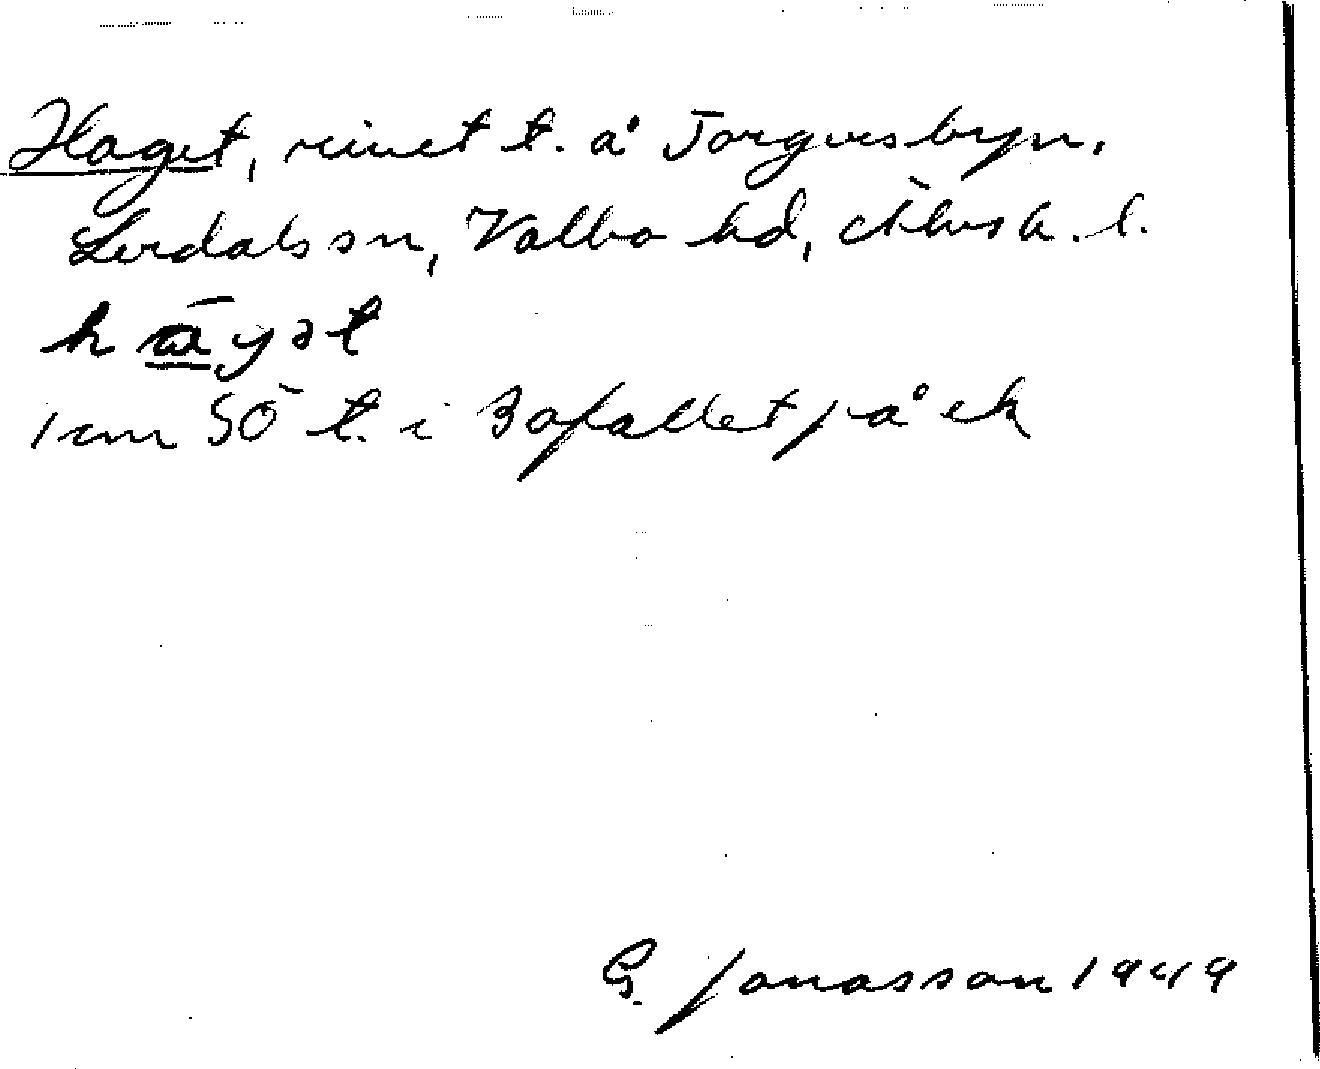 Haget, rivet t. å Torgersbyn.
Lerdals sn, Valbo hd, Älvsb. l.
hāɡət
1 cm SO t. i Bofallet på ek
G. Jonasson 1949